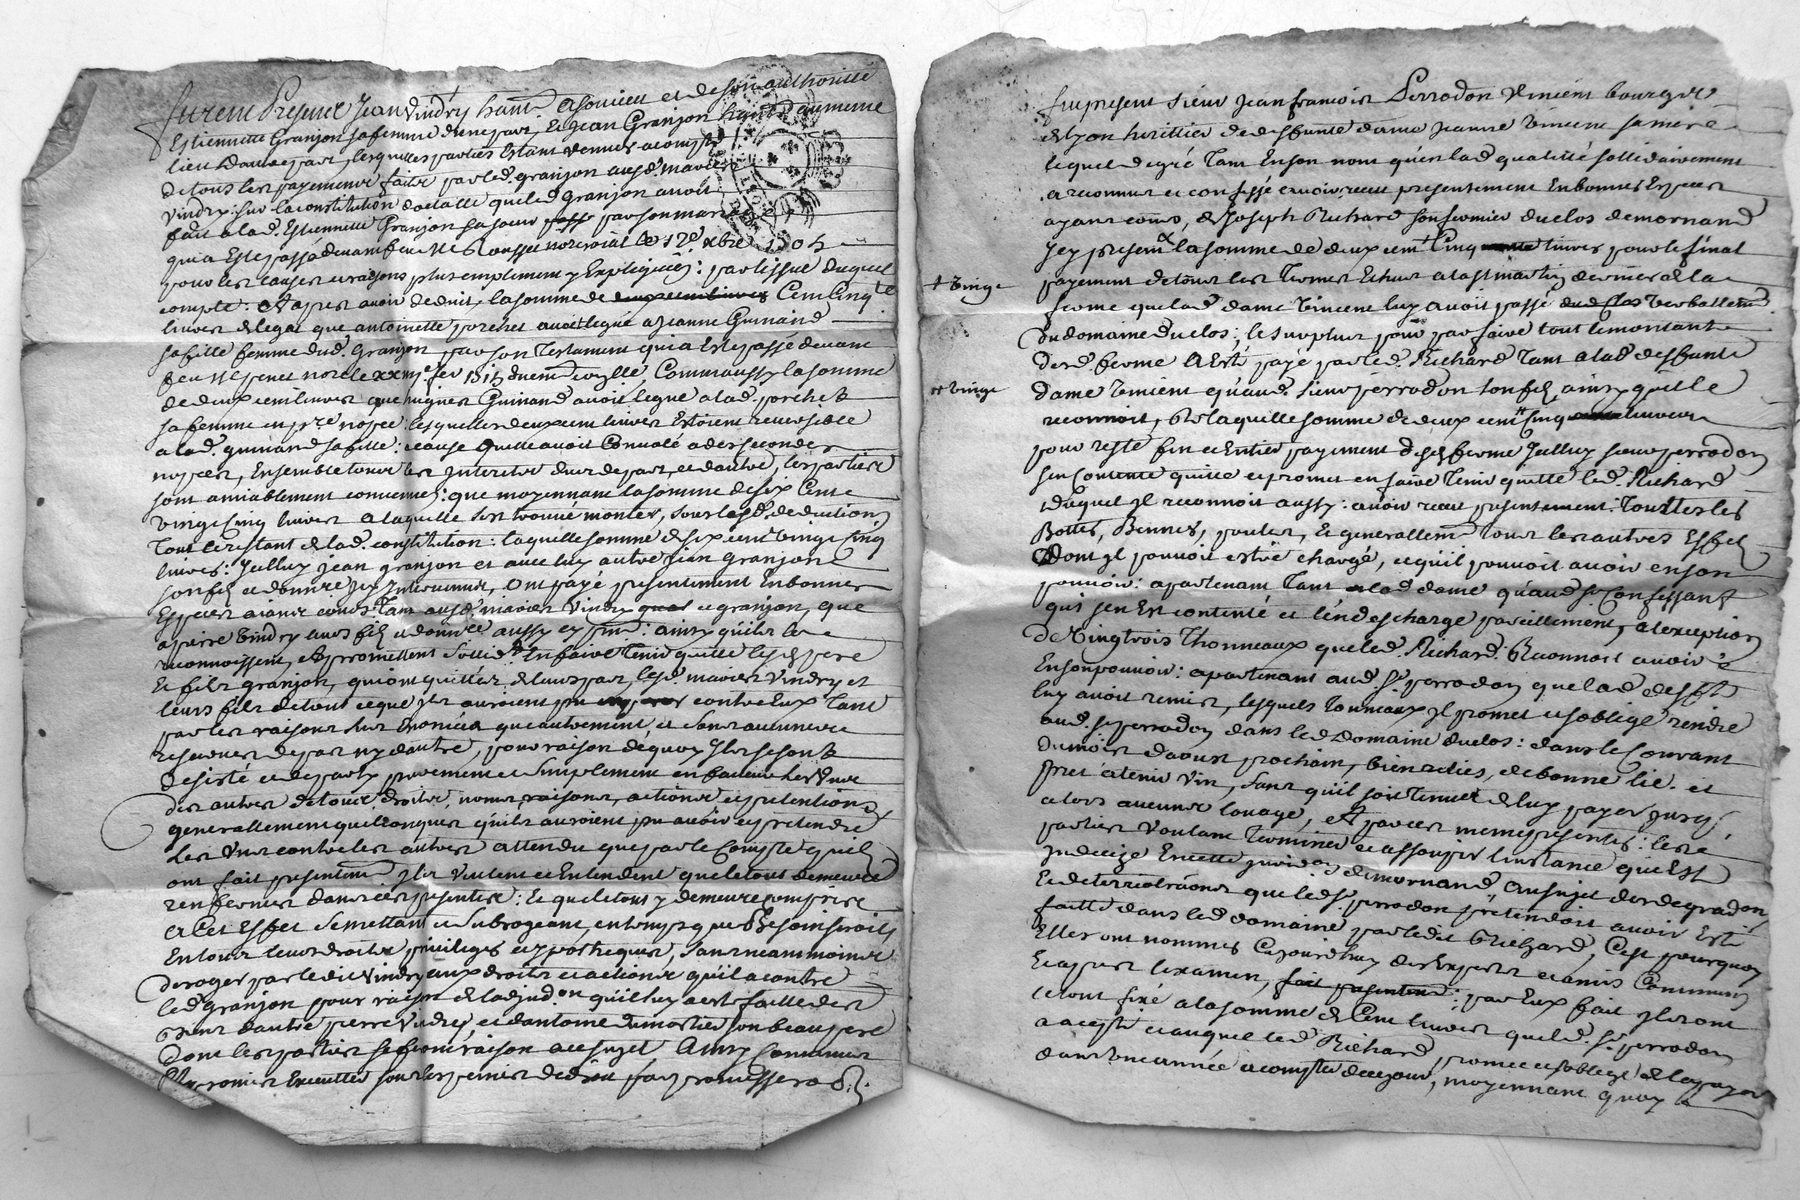 furent Presents Jean Vindry habt. a souvieu et de son authoritté
Estiennette Granjon sa femme d'une part, Et Jean Granjon habt. du meme
lieu dautre part, lesquels parties Estant venues a compte
de tous les payements faits par led. granjon ausd. mariés
Vindry: sur la constitution dotalle que led granjon avoit
fait a lad. Estiennette Granjon sa soeur par son mariage
qui a Esté passé devant feu Me Rousset nore royal le xbre
pour les causes et raisons plus emplement y Expliquées: par lissue duquel
compte: Et apres avoir deduit, la somme de deux cent livres Cent Cinqte
livres de legat que antoinette porchet avoit legué a Jeanne Guinand
sa fille femme dud. Granjon par son Testament qui a Esté passé devant
feu Me nore le Comm'aussy la somme
de deux cent livres que Guinand avoit legué a lad. porchet
sa femme en pre nopce: lesquelles deux cent livres Estoient reversible
a lad. guinand sa fille: a cause quelle avoit Convolé a des secondes
nopces, Ensemble tous les Interests d'une part, et d'autre, les parties
sont amiablement convenues: que moyennant la somme de six Cent
vingt cinq livres a laquelle sest trouvé monter, sous lesd. deductions
Tout le restant de lad. constitution: laquelle somme de six cent vingt cinq
livres: Icelluy Jean granjon et avec luy autre Jean granjon
son fils a donné Icy Intervenus, ont payé presentement En bonnes
Especes aiants cours Tant ausd. mariés Vindry et granjon, que
a pierre Vindry leurs fils et donnée aussy cy pnt: ainsy qu'ils le
reconnoissent, Et promettent sollidt. En faire Tenir quitte lesd pere
Et fils granjon, qui ont quittés de leurs part, lesd. mariés Vindry et
leurs fils de tout ce que ils auroient pu contre Eux Tant
par les raisons sus Enoncées que autrement, et sans aucunnes
reserves de part ny dautre, pour raison de quoy Ils se sont
desisté et departy purement et simplement en faveur les Uns
des autres de tous droits, noms raisons, actions et pretentions
generallement quelconques quils auroient pu avoir et pretendre
les Uns contre les autres attendu que par le Compte quils
ont fait presentemt. Ils Veulent et Entendent que le tout demeure
renfermé dans ces presentes: Et que le tout y demeure compris
a Cet Effet se mettant et subrogeant, en temps que besoin seroit
En tous leurs droits privileges et ypotheques, sans neantmoins
deroger par ledit Vindry aux droits et actions quil a contre
led granjon pour raison de ladjudon. quil luy a esté faitte des
biens dautre pierre Vindry, et d'antoine dumortier son beau pere
Dont les parties se feront raison a ce sujet Ainsy Convenu
Et promis Executter sous les peines de droit par promissera &c.
fut present sieur Jean francois Perrodon Vincent bourgeois
de lyon herittier de deffunte dame Jeanne Vincent sa mere
lequel de gré Tant En son nom qu'en lad qualitté sollidairement
a reconnu et confessé avoir receu presentement En bonnes Especes
ayant cours, de Joseph Richard son fermier du clos de mornand
Icy present la somme de deux cent Cinquante livres pour le final
payement de tous les Termes Echus a la st martin derniere de la
+ vingt
ferme que lad dame Vincent luy avoit passé dud Clos Verballemt.
du domaine du clos; le surplus pour parfaire tout le montant
de lad. ferme a Esté payé par led. Richard Tant a lad deffunte
# vingt
dame Vincent qu'aud. sieur perrodon son fils ainsy quil le
reconnoit, De laquelle somme de deux cent Cinquante livres
pour reste fin et Entier payement desd. ferme Icelluy sieur perrodon
sen Contente quitte et promet en faire Tenir quitte led. Richard
duquel Il reconnoit aussy: avoir receu presentement: Touttes les
Bottes, Bennes, poules, Et generallemt. Tous les autres Effets
Dont Il pouvoit estre chargé, et quil pouvoit avoir en son
pouvoir: apartenant Tant a lad dame qu'aud. sr. Confessant
qui sen Est contenté et l'en descharge pareillement, a lexception
de Vingtrois Thonneaux que led. Richard Reconnoit avoir
En son pouvoir: apartenant aud. sr. perrodon que lad. deffte
luy avoit remis, lesquels Tonneaux Il promet et soblige rendre
aud. sr perrodon dans led Domaine duclos: dans le Courant
du mois daoust prochain, bien reliés, de bonne lie. et
pret a tenir vin, sans quil soit tenus de luy payer jusq.
alors aucunes louage, et parces memes presentes: les
parties voulant Terminer et assoupir linstance qui Est
Indecize En cette juridon. de mornand au sujet des degradons
Et deterriorations que led sr. perrodon pretendoit avoir Esté
faitte dans led domaine par ledit Richard, C'est pourquoy
Elles ont nommés Cejourdhuy des Experts et amis Communs
Et apres lexamen, fait presentemt: par Eux fait Ils ront
le tout fixé a la somme de Cent livres que led. sr. perrodon
a accepté et auquel led Richard promet et soblige de les payer
dans Une année a compter de ce jour, moyennant quoy